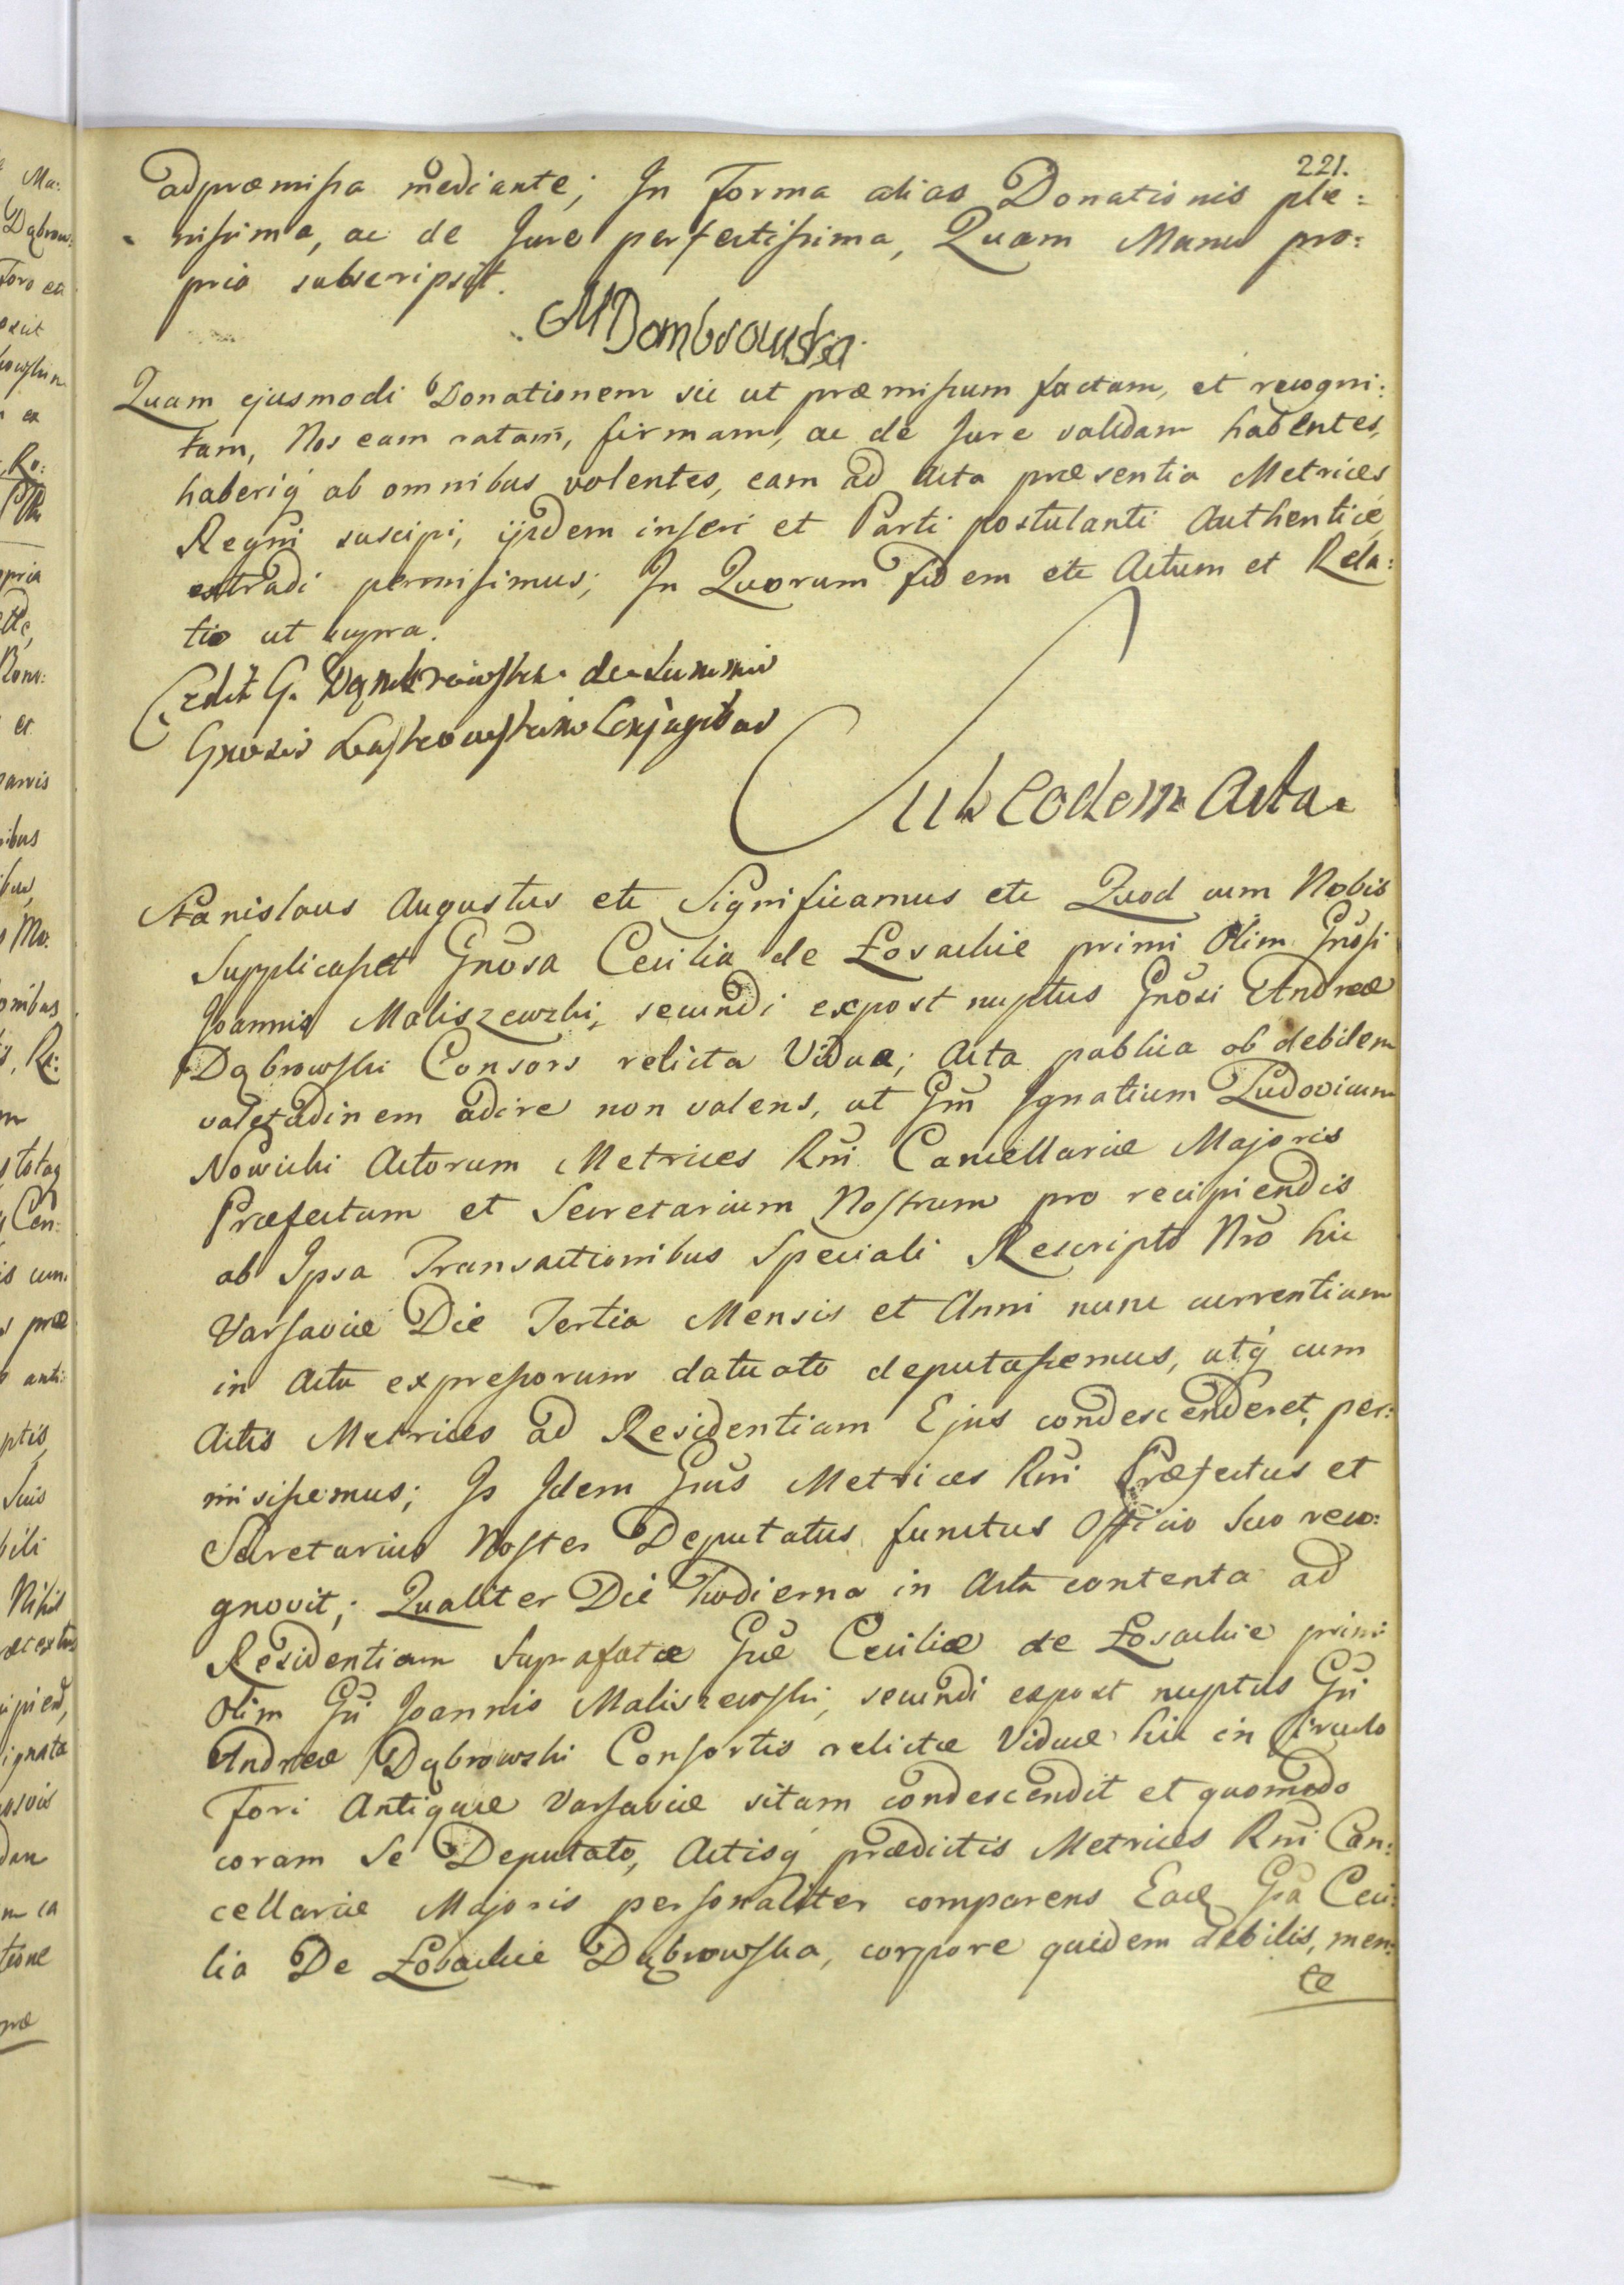 221.
adpræmissa mediante; In Forma alias Donationis ple:
nissima, ac de Jure perfectissima, Quam Manu pro:
pria subscripsit.
MDombrowska
Quam ejusmodi Donationem sic ut præmissum factam, et recogni:
tam, Nos eam ratam, firmam, ac de Jure validam habentes,
haberiq́ ab omnibus volentes, eam ad Acta præsentia Metrices
Regni suscipi, ijsdem inseri et Parti postulanti Authenticé
extradi permisimus; In Quorum fidem etc Actum et Rela:
tio ut supra.
de Summis
Gnosis Conjugibus
Sub eodem Acta
Stanislaus Augustus etc Significamus etc Quod cum Nobis
Supplicasset Gnosa Cecilia de Łosackie primi Olim Gnosi
Joannis Maliszewski, secundi expost nuptus Gnosi Andreæ
Dąbrowski Consors relicta Vidua; Acta publica ob debilem
valetudinem adire non valens, ut Gm Ignatium Ludovicum
Nowicki Actorum Metrices Rni Cancellariæ Majoris
Præfectum et Secretarium Nostrum pro recipiendis
ab Ipsa Transactionibus Speciali Rescripto Nro hic
Varsaviæ Die Tertia Mensis et Anni nunc currentium
in Actu expressorum datuato deputassemus, utq́ cum
Actis Metrices ad Residentiam Ejus condescenderet, per:
misissemus; Is Idem Gnus Metrices Rni Præfectus et
Secretarius Noster Deputatus functus Officio Suo reco:
gnovit; Qualiter Die Hodierna in Actu contenta ad
Residentiam Suprafatæ Gnæ Ceciliæ de Łosackie primi
Olim Gni Joannis Maliszewski, secundi expost nuptus Gni
Andreæ Dąbrowski Consortis relictæ Viduæ hic in Circulo
Fori Antiquæ Varsaviæ sitam condescendit et quomodo
coram Se Deputato, Actisq́ prædictis Metrices Rni Can:
cellariæ Majoris personaliter comparens Eadę Gna Ceci:
lia De Łosackie Dąbrowska, corpore quidem debilis, men:
te